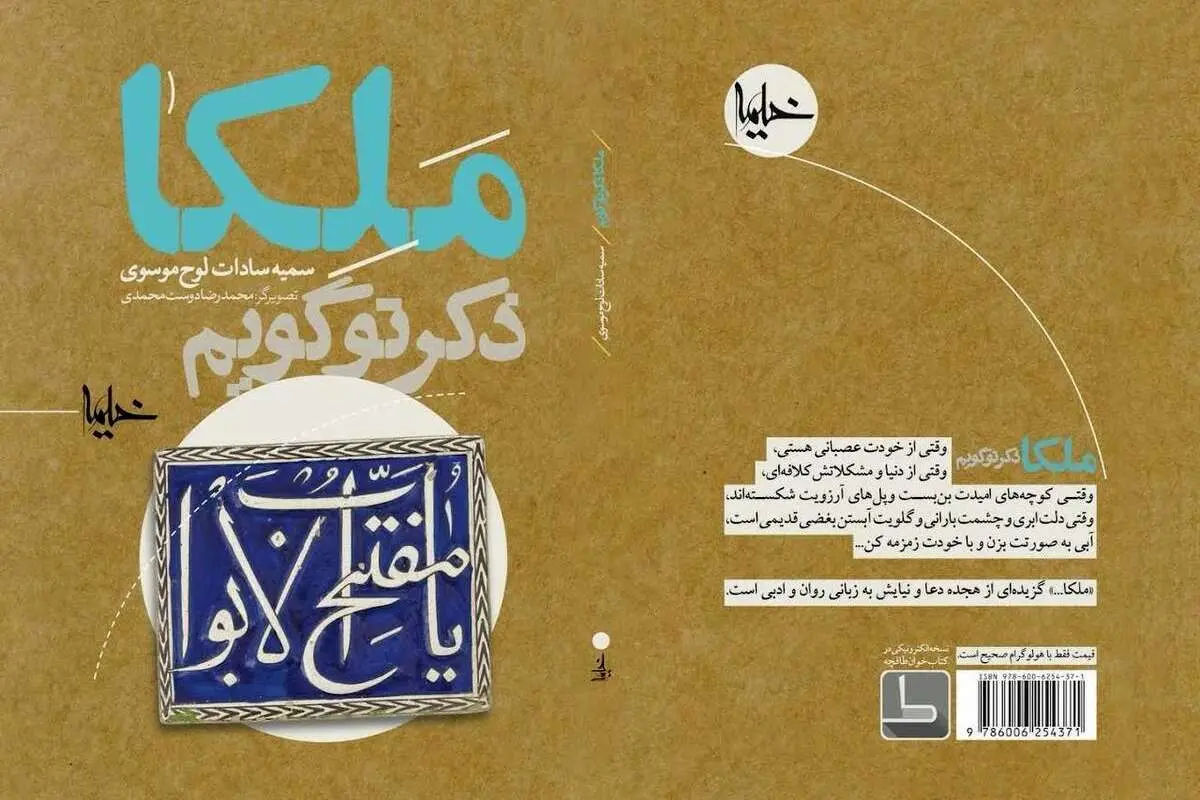 مَلکا
۱
سمیه سادات لوح موسوی
تصویرگر: محمدرضا دوست‌محمدی
ذکر تو گویم
خیمه
یا مفتح الابواب
ملکا ذکر تو گویم
سمیه سادات لوح موسوی
خیمه
خیمه
ملکا ذکر تو گویم
وقتی از خودت عصبانی هستی،
وقتی از دنیا و مشکلاتش کلافه‌ای،
وقتی کوچه‌های امیدت بن‌بست و پل‌های آرزویت شکسته‌اند،
وقتی دلت ابری و چشمت بارانی و گلویت آبستن بغضی قدیمی است،
آبی به صورتت بزن و با خودت زمزمه کن...
«ملکا...» گزیده‌ای از هجده دعا و نیایش به زبانی روان و ادبی است.
قیمت فقط با هولوگرام صحیح است.
نسخه الکترونیکی در
کتاب‌خوان طاقچه
ISBN 978-600-6254-37-1
9 786006 254371